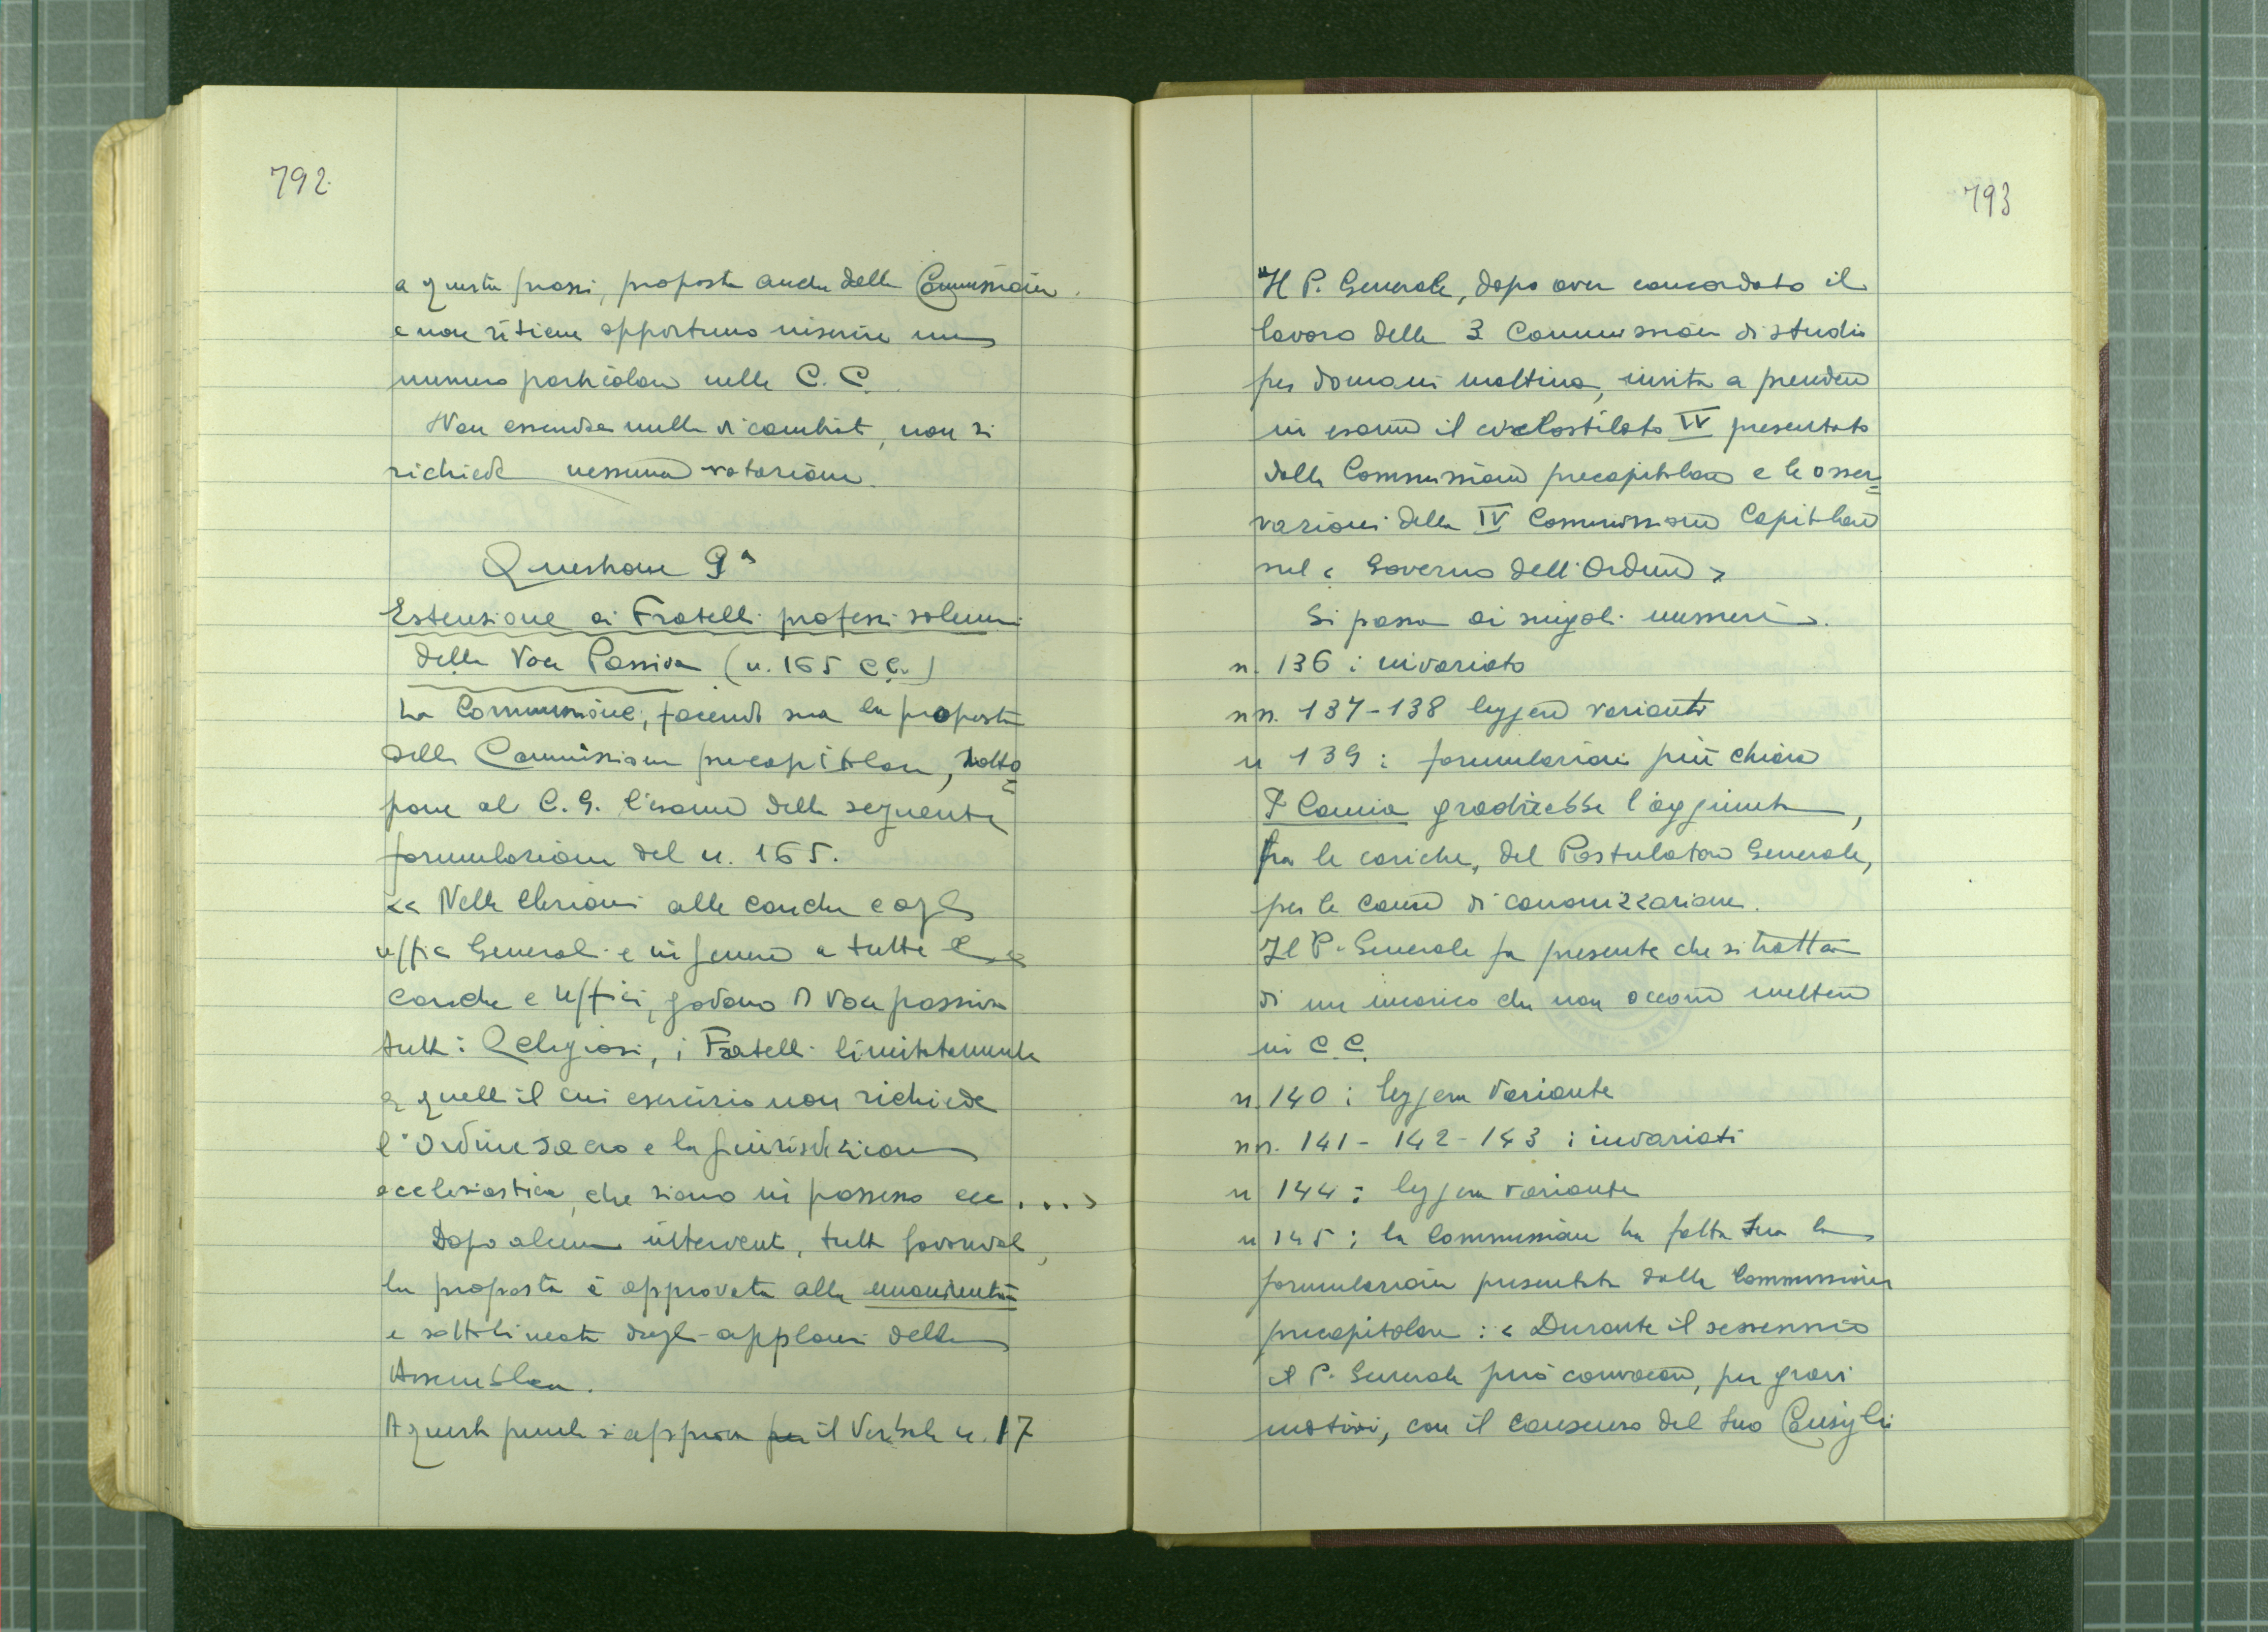 792
a questa prassi, proposta anche dalla Commissione
e non ritiene opportuno inserire un
numero particolare nelle C. C.
Non essendo nulla di cambiato, non si
richiede nessuna votazione.
Questione 9ª
Estensione ai Fratelli professi solenni
della Voce Passiva (n. 165 C.C.)
La Commissione, facendo sua la proposta
della Commissione precapitolare, sotto=
pone al C. G. l'esame della seguente
formulazione del n. 165.
<< Nelle elezioni alle cariche e agli
uffici Generali e in genere a tutte le
cariche e Uffici, godono di Voce passiva
tutti i Religiosi, i Fratelli limitatamente
a quelli il cui esercizio non richiede
l'Ordine sacro e la giurisdizione
ecclesiastica, che siano in possesso ecc....>
Dopo alcuni interventi, tutti favorevoli,
la proposta è approvata alla unanimità
e sottolineata dagli applausi della
Assemblea.
A questo punto si approva il Verbale n. 17
793
Il P. Generale, dopo aver concordato il
lavoro delle 3 Commissioni di studio
per domani mattina, invita a prendere
in esame il ciclostilato IV presentato
dalla Commissione precapitolare e le osser=
vazioni della IV Commissione Capitolare
sul < Governo dell'Ordine >
Si passa ai singoli numeri.
n. 136 : invariato
nn. 137-138 leggere varianti
n 139 : formulazione più chiara
P. Camia gradirebbe l'aggiunta,
fra le cariche, del Postulatore Generale,
per le cause di canonizzazione.
Il P. Generale fa presente che si tratta
di un incarico che non occorre mettere
in C. C.
n. 140 : leggera Variante
nn. 141 - 142 - 143 : invariati
n 144 : leggera variante
n 145 : la Commissione ha fatta sua la
formulazione presentata dalla Commissione
precapitolare : < Durante il sessennio
il P. Generale può convocare, per gravi
motivi, con il consenso del suo Consiglio